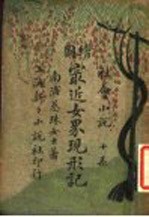 社會小說
繪圖
最近女界現形記
南浦蕙珠女士著
上海新新小說社印行